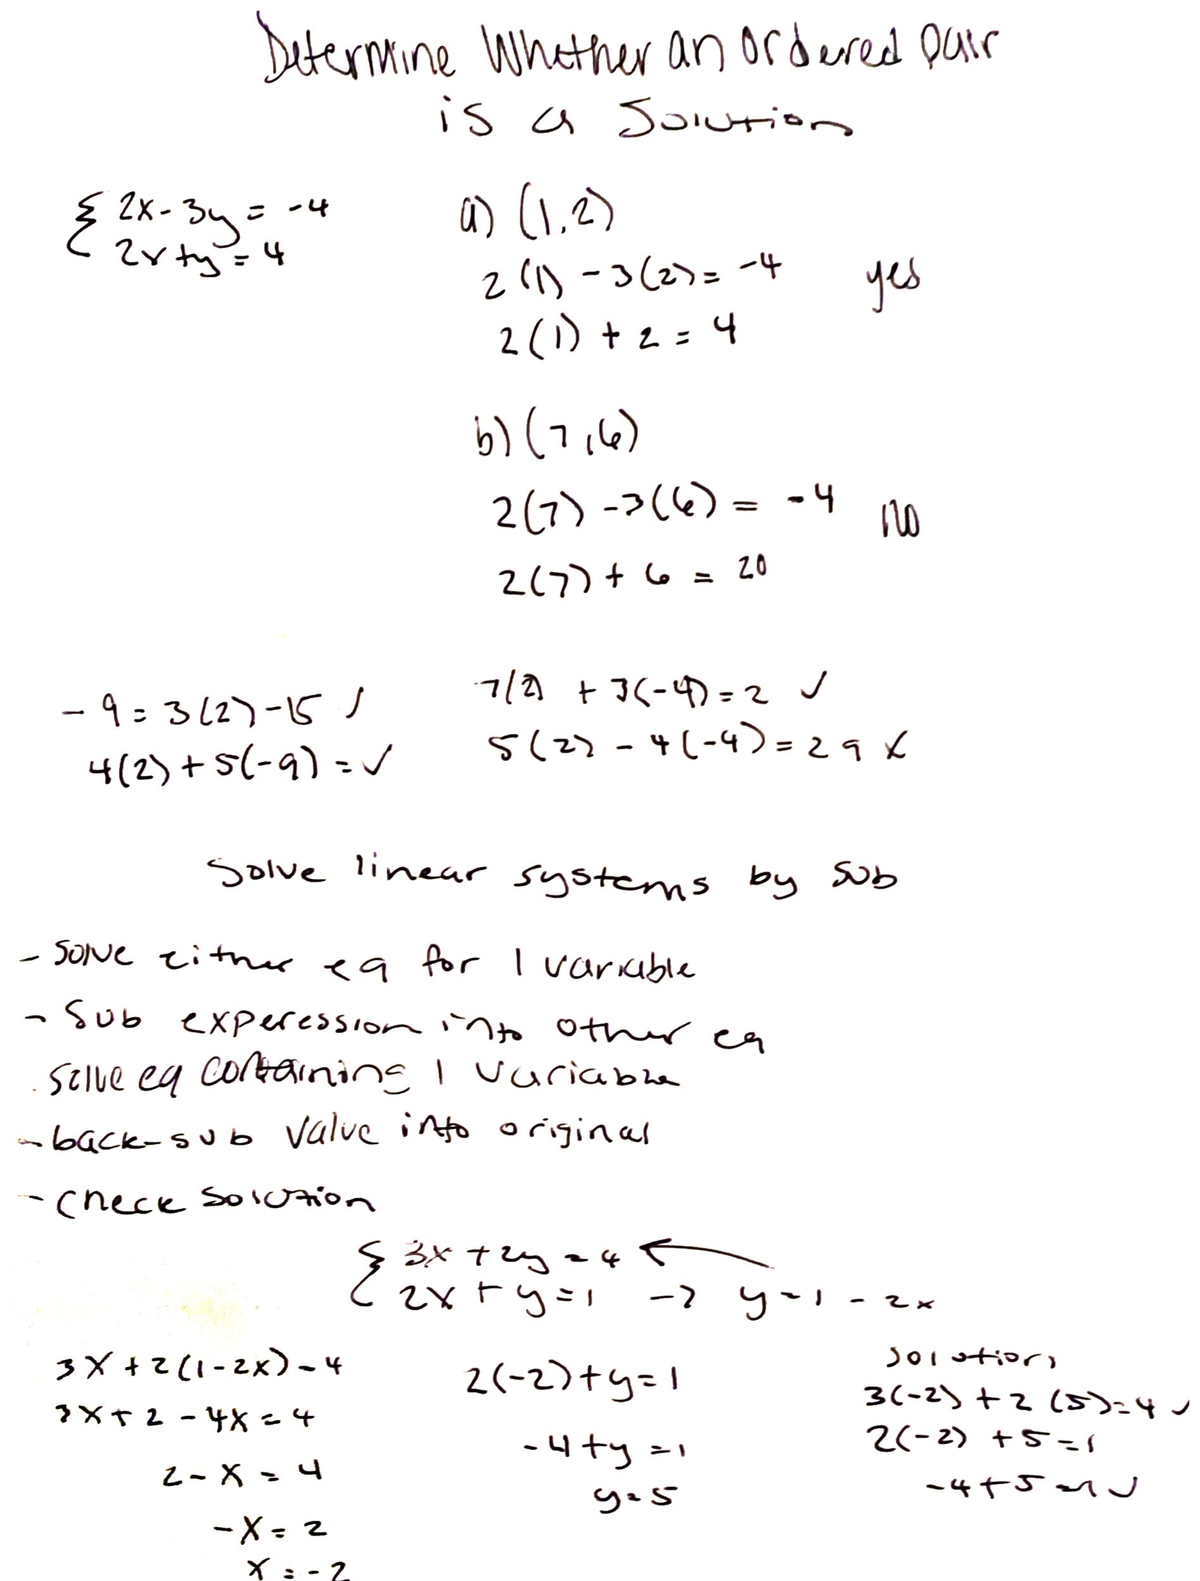 Determine Whether an Ordered pair
is a Solution
{ 2x - 3y = -4
2x + y = 4
a) (1,2)
2(1) - 3(2) = -4 yes
2(1) + 2 = 4
b) (7,6)
2(7) - 3(6) = -4 no
2(7) + 6 = 20
-9 = 3(2) - 15 ✓
4(2) + 5(-9) = ✓
7(2) + 3(-4) = 2 ✓
5(2) - 4(-4) = 29 x
Solve linear systems by sub
- solve either eq for 1 variable
- Sub experession into other eq
. solve eq containing 1 variable
- back-sub value into original
- check solution
{ 3x + 2y = 4 ←
2x + y = 1 → y = 1 - 2x
3x + 2(1-2x) = 4
3x + 2 - 4x = 4
2 - x = 4
-x = 2
x = -2
2(-2) + y = 1
-4 + y = 1
y = 5
solution
3(-2) + 2(5) = 4 ✓
2(-2) + 5 = 1
-4 + 5 = 1 ✓